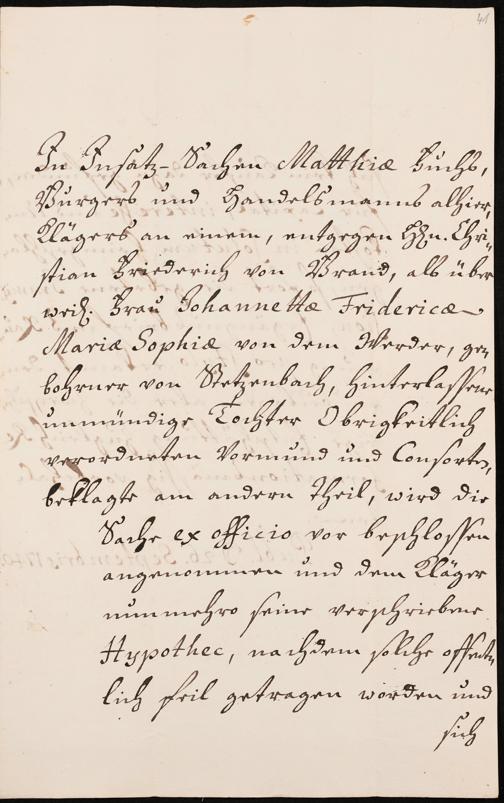 41
In Insatz-Sachen Matthiæ Fuchs,
Burgers und Handelsmanns alhier,
Klägers an einem, entgegen Hn. Chri-
stian Friederich von Brand, als über
weih. Frau Johannettæ Fridericæ
Mariæ Sophiæ von dem Werder, ge-
bohrner von Stetzenbach, hinterlassene
unmündige Tochter Obrigkeitlich
verordneten Vormund und Consorten,
beklagte am andern Theil, wird die
Sache ex officio vor beschlossen
angenommen und dem Kläger
nunmehro seine verschriebene
Hypothec, nachdem solche offent-
lich feil getragen worden und
sich